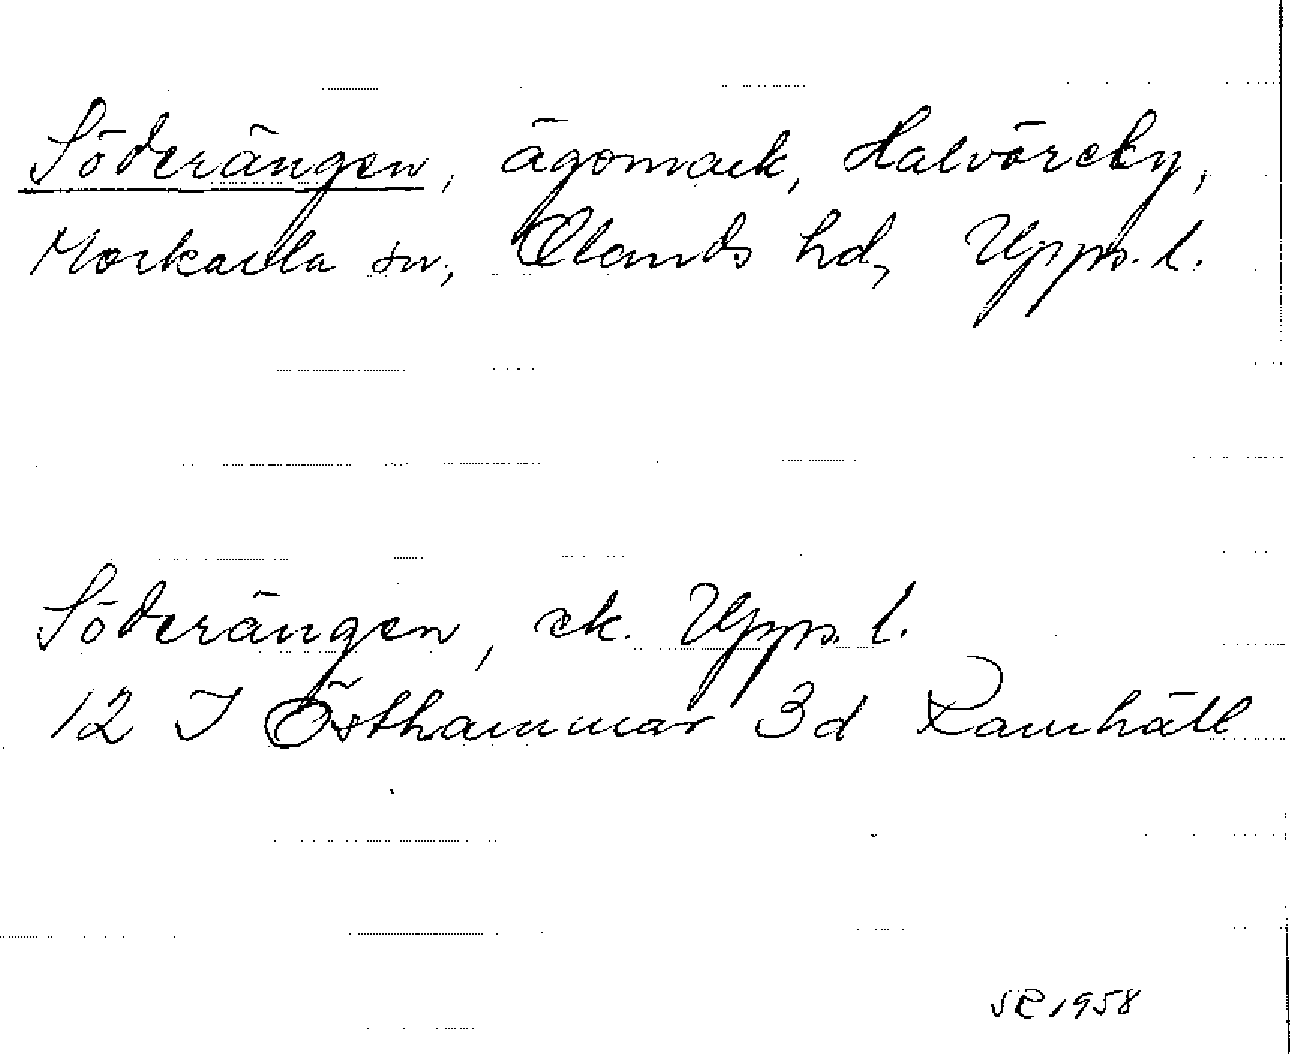 Söderängen, ägomark, Halvörsby,
Morkarla sn, Olands hd, Upps. l.
Söderängen, ek. Upps. l.
12 I Östhammar 3d Ramhäll
SR 1958